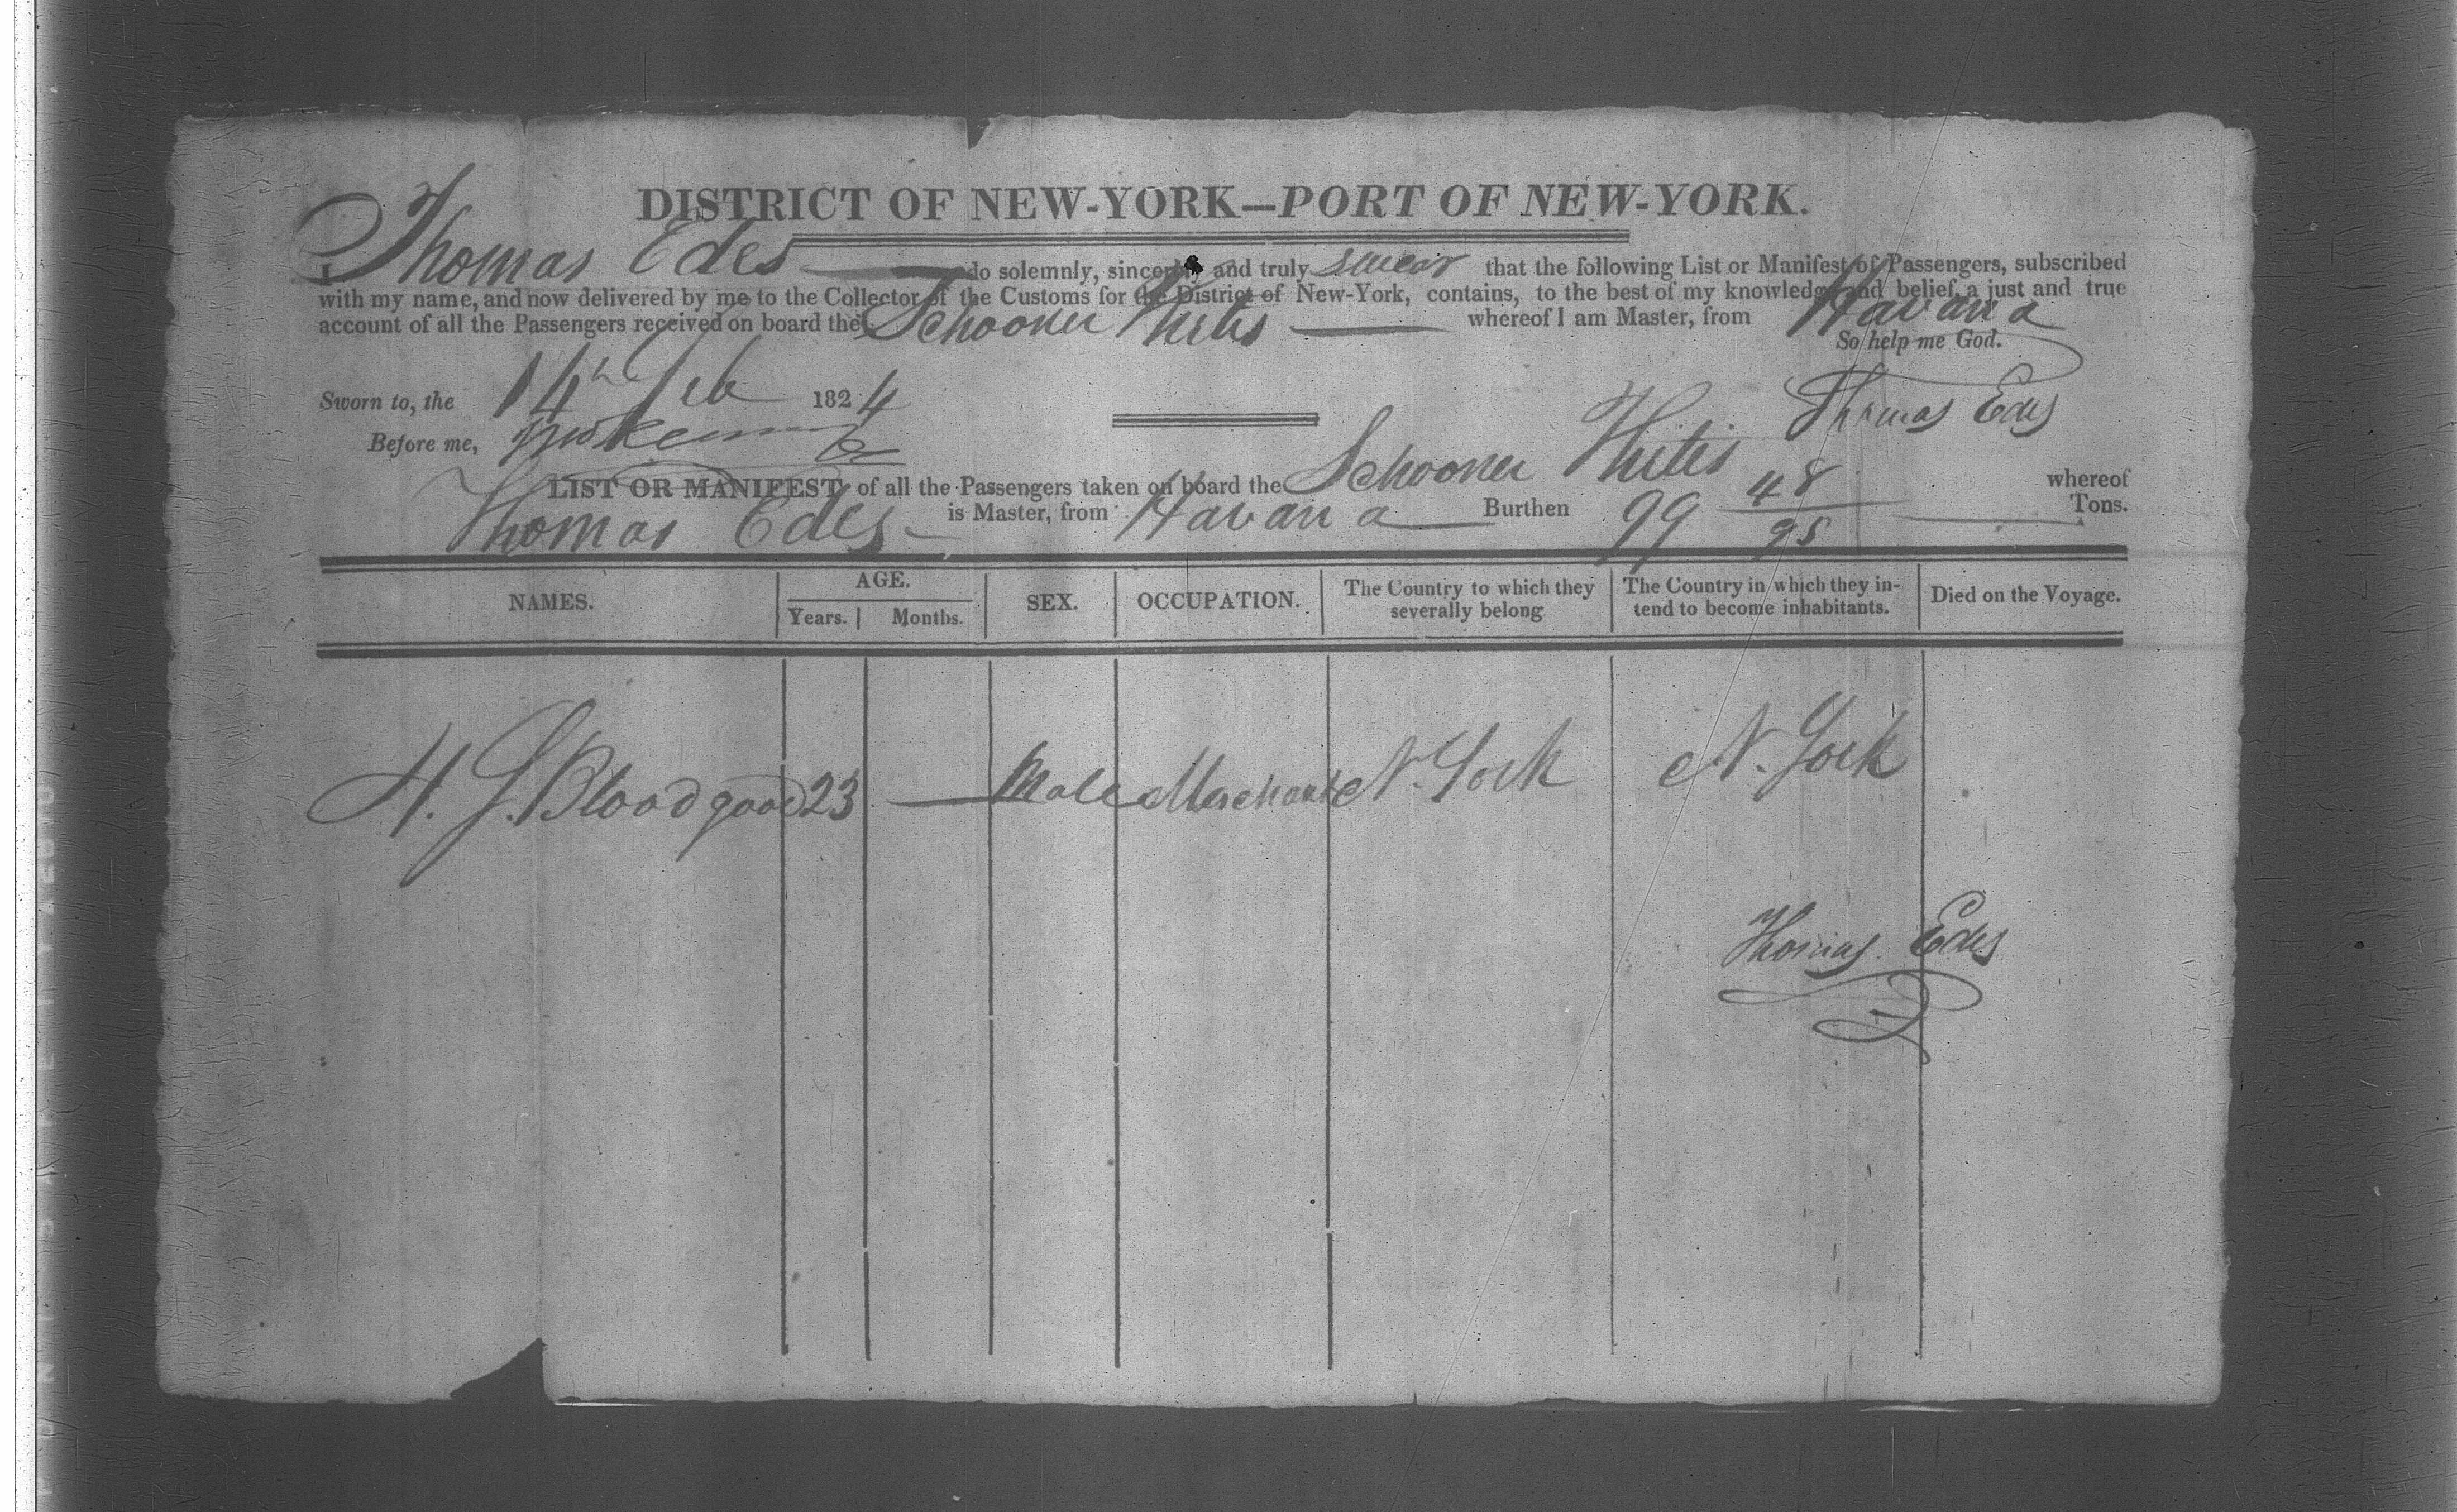 DISTRICT OF NEW-YORK—PORT OF NEW-YORK.
I Thomas Edes do solemnly, sincerely and truly swear that the following List or Manifest of Passengers, subscribed
with my name, and now delivered by me to the Collector of the Customs for the District of New-York, contains, to the best of my knowledge and belief, a just and true
account of all the Passengers received on board the Schooner Thetis whereof I am Master, from Havana
So help me God.
Sworn to, the 14th Feb 1824
Thomas Edes
Before me,
LIST OR MANIFEST of all the Passengers taken on board the Schooner Thetis whereof
Thomas Edes is Master, from Havana Burthen 99 48/95 Tons.
NAMES. AGE. SEX. OCCUPATION. The Country to which they severally belong The Country in which they intend to become inhabitants. Died on the Voyage.
Years. Months.
H. S. Bloodgood 23 Male Merchant N. York N. York
Thomas Edes